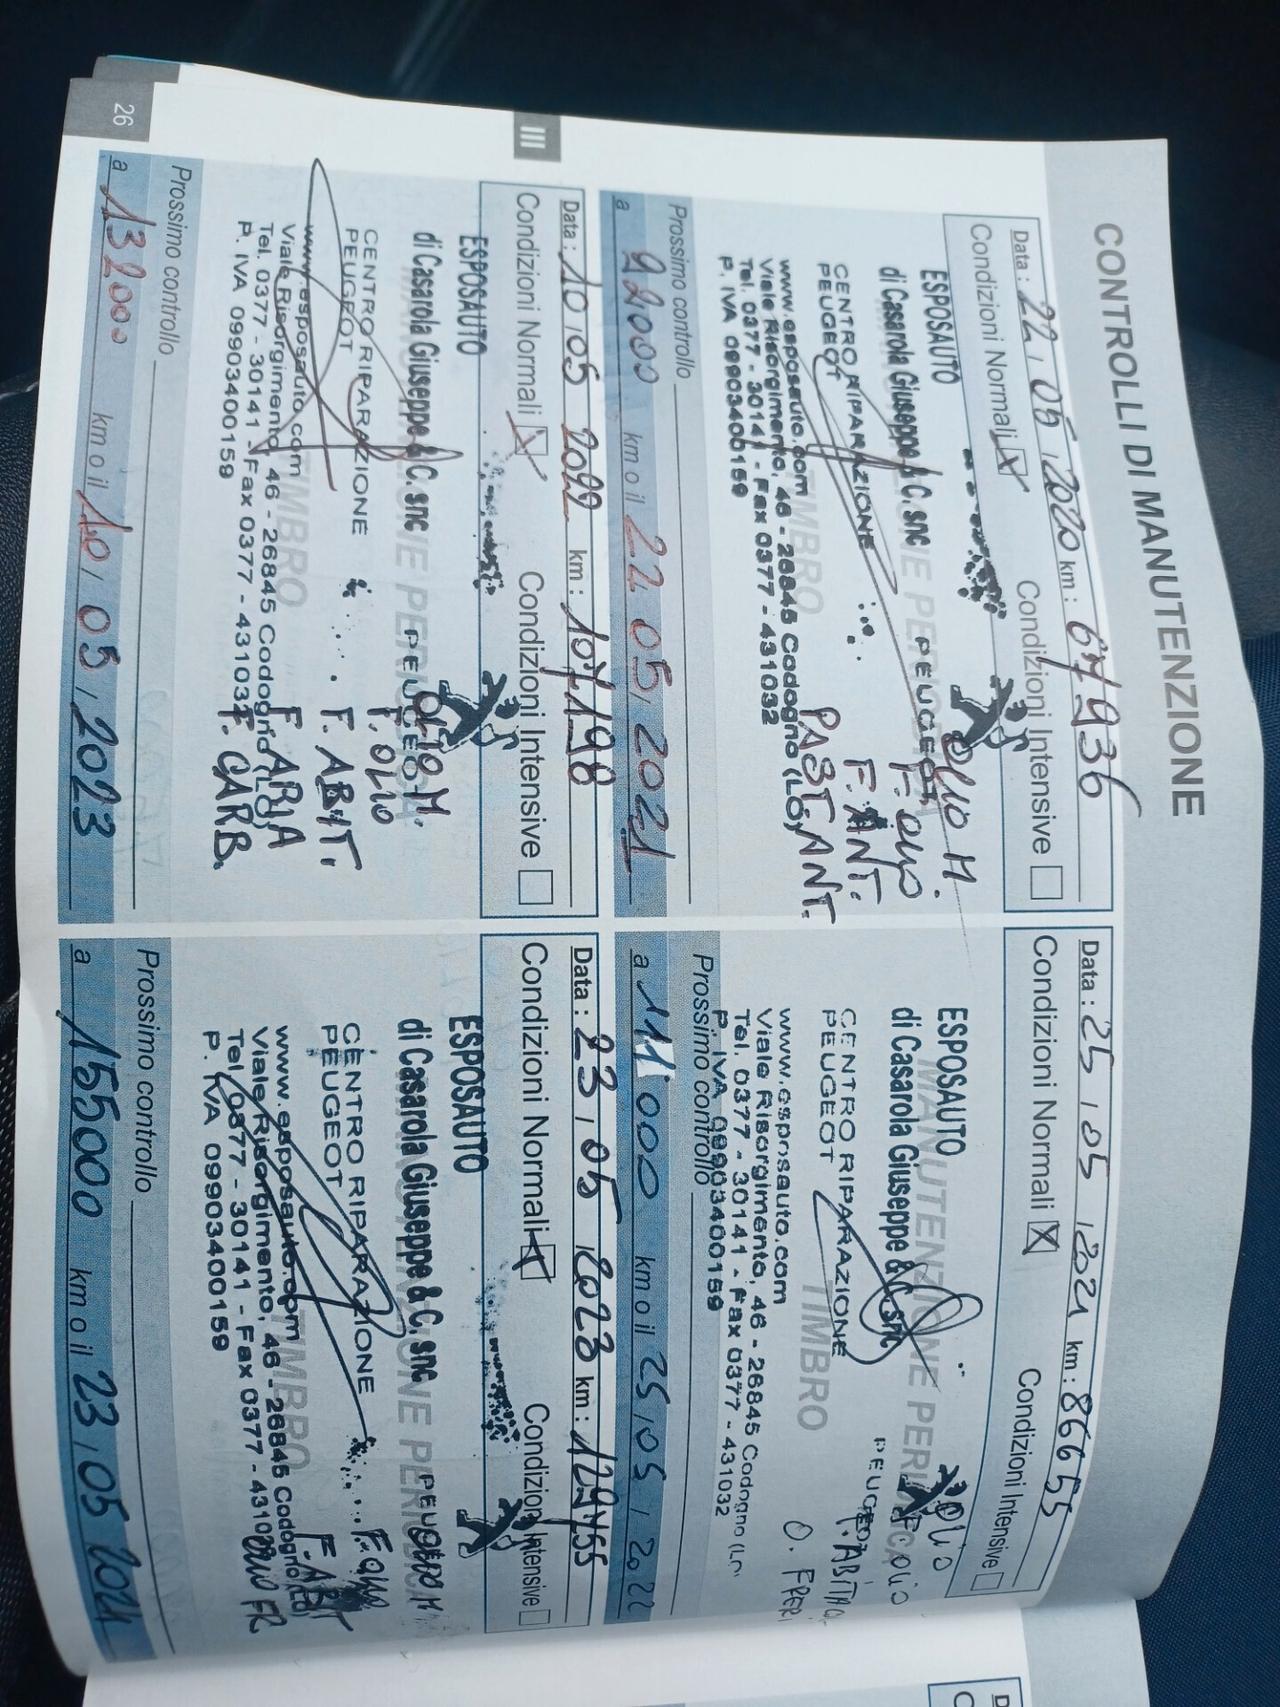 CONTROLLI DI MANUTENZIONE
Data : 22 / 05 / 2020 km : 67936
Condizioni Normali X Condizioni Intensive
ESPOSAUTO
di Casarola Giuseppe & C. snc
PEUGEOT
CENTRO RIPARAZIONE
PEUGEOT
www.esposauto.com
Viale Risorgimento, 46 - 26845 Codogno (LO)
Tel. 0377 - 30141 - Fax 0377 - 431032
P. IVA 09903400159
TIMBRO
OLIO M.
F. OLIO
F. ANT.
PAST. ANT.
Prossimo controllo
a 92000 km o il 22 05 / 2021
Data : 25 / 05 / 2021 km : 86655
Condizioni Normali X Condizioni Intensive
MANUTENZIONE PERIODICA
ESPOSAUTO
di Casarola Giuseppe & C. snc
PEUGEOT
CENTRO RIPARAZIONE
PEUGEOT
TIMBRO
www.esposauto.com
Viale Risorgimento, 46 - 26845 Codogno (LO
Tel. 0377 - 30141 - Fax 0377 - 431032
P. IVA 09903400159
OLIO
F. OLIO
O. FRENI
Prossimo controllo
a 111.000 km o il 25 / 05 / 2022
III
Data : 10 / 05 2022 km : 107198
Condizioni Normali X Condizioni Intensive
ESPOSAUTO
di Casarola Giuseppe & C. snc
PEUGEOT
CENTRO RIPARAZIONE
PEUGEOT
www.esposauto.com
Viale Risorgimento, 46 - 26845 Codogno (LO)
Tel. 0377 - 30141 - Fax 0377 - 431032
P. IVA 09903400159
TIMBRO
OLIO M.
F. OLIO
F. ABIT.
F. ARIA
F. CARB.
Prossimo controllo
a 132000 km o il 10 / 05 / 2023
Data : 23 / 05 / 2023 km : 129455
Condizioni Normali X Condizioni Intensive
ESPOSAUTO
di Casarola Giuseppe & C. snc
PEUGEOT
CENTRO RIPARAZIONE
PEUGEOT
www.esposauto.com
Viale Risorgimento, 46 - 26845 Codogno (LO)
Tel. 0377 - 30141 - Fax 0377 - 431032
P. IVA 09903400159
TIMBRO
OLIO M
F. OLIO
F. ABIT
OLIO FR
Prossimo controllo
a 155000 km o il 23 / 05 2024
26